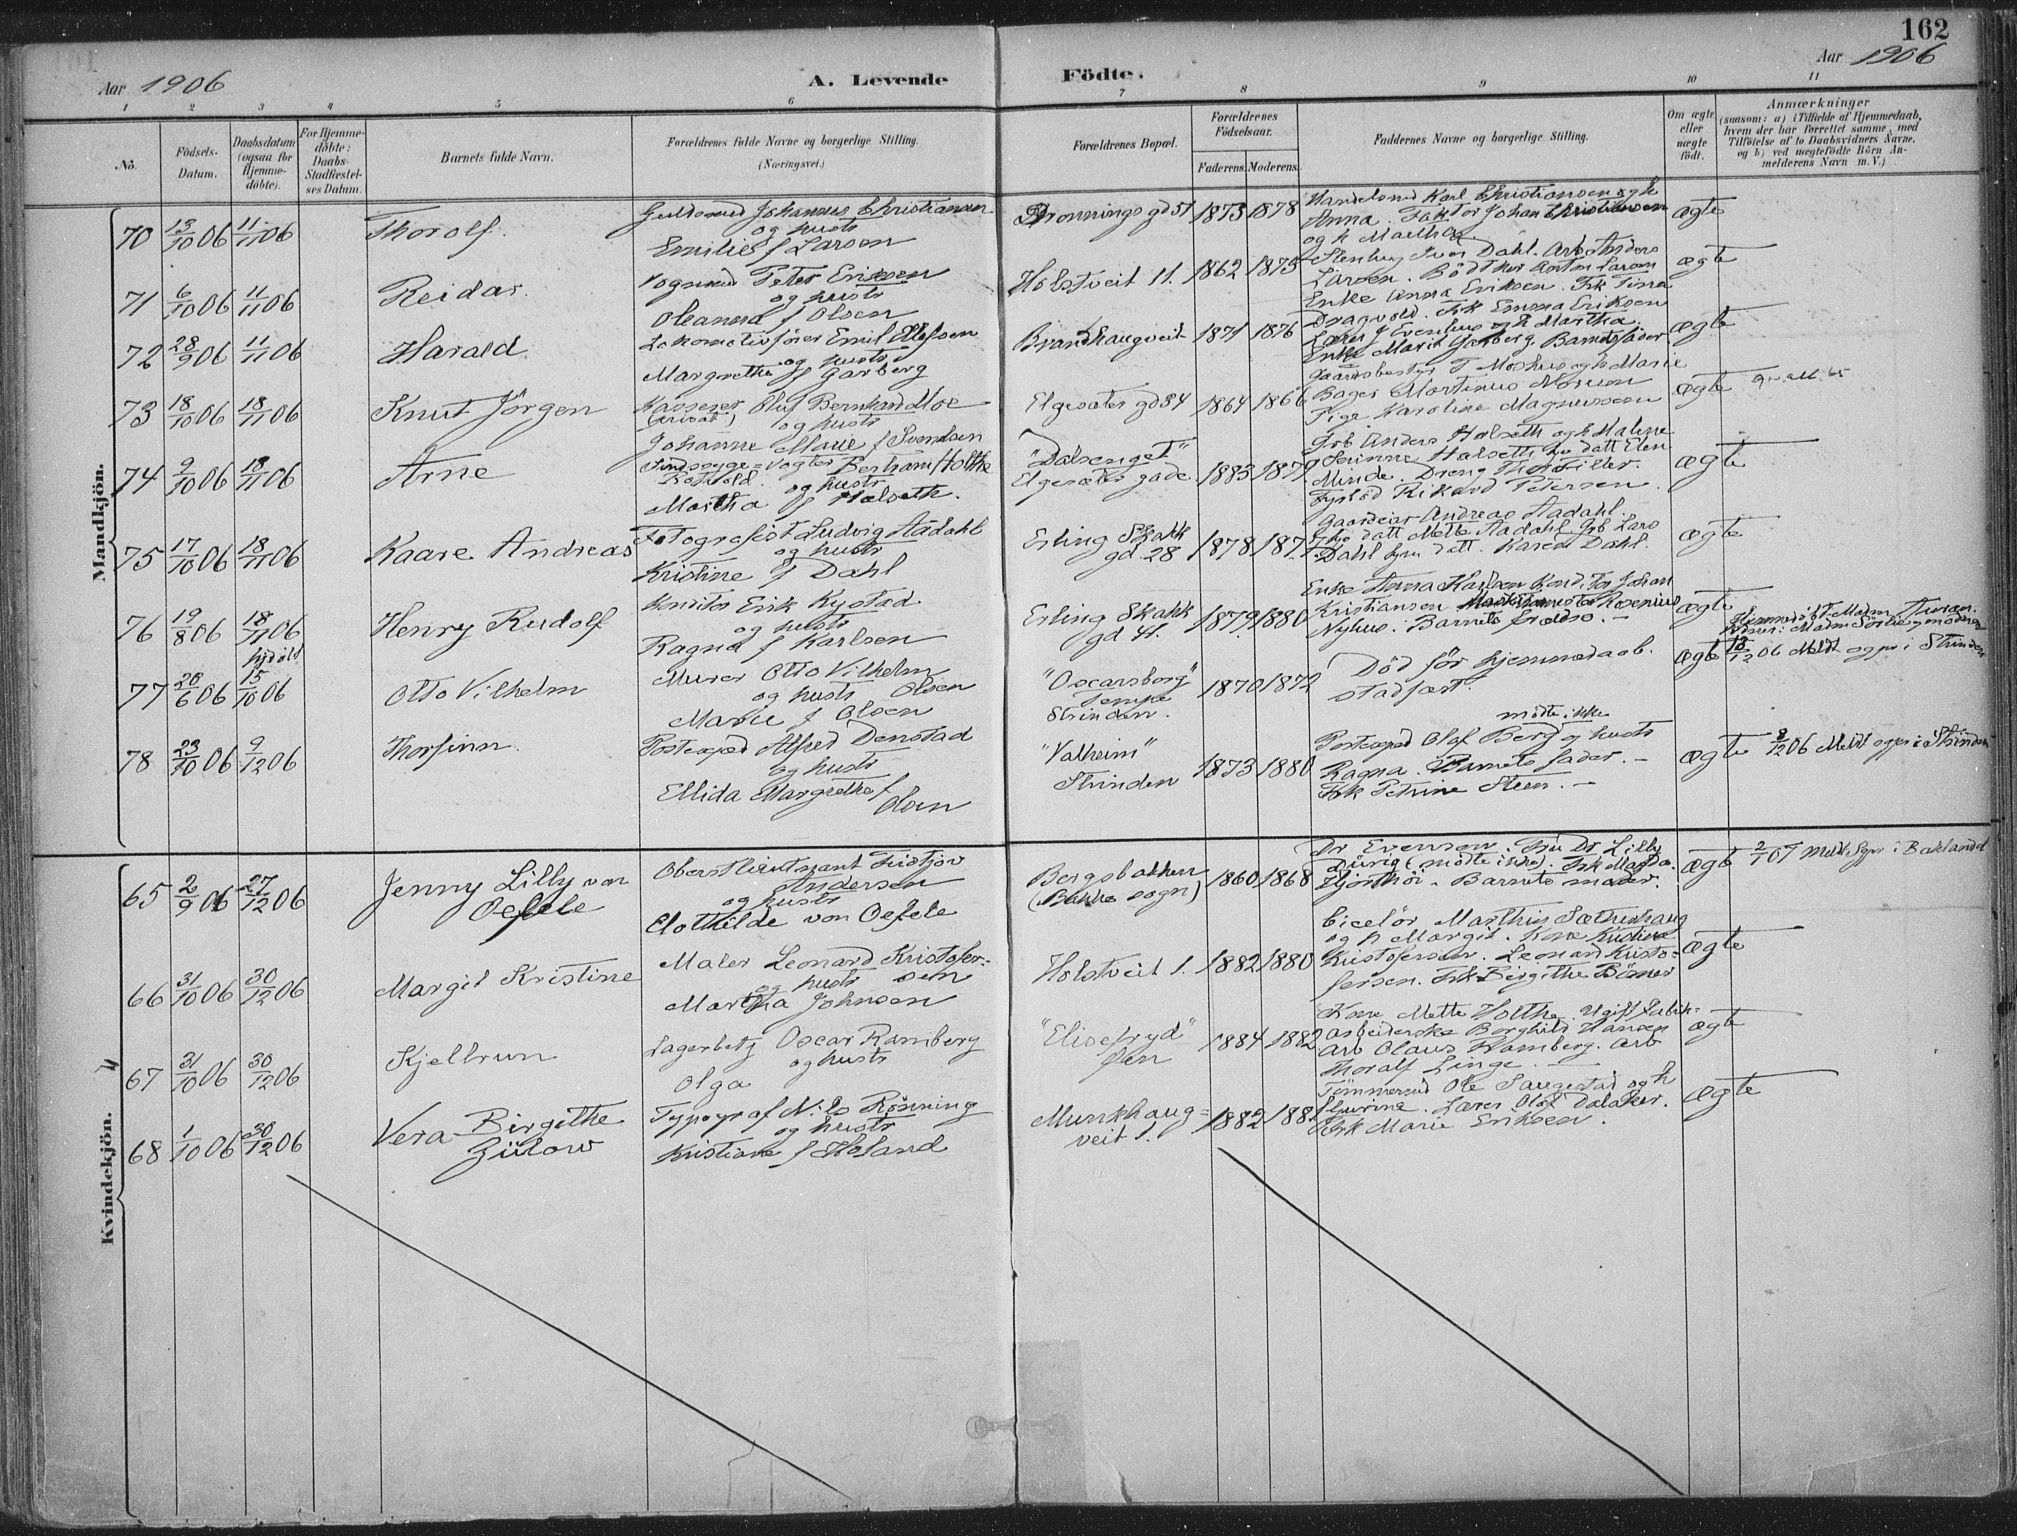 162
Aar 1906
A. Levende Födte.
Aar 1906
1 2 3 4 5 6 7 8 9 10 11
No.
Födsels-Datum.
Daabsdatum (ogsaa for Hjemme-döbte).
For Hjemme-döbte: Daabs-Stadfæstelses Datum.
Barnets fulde Navn.
Forældrenes fulde Navne og borgerlige Stilling.
(Næringsvei.)
Forældrenes Bopæl.
Forældrenes Födselsaar.
Faderens. Moderens.
Faddernes Navne og borgerlige Stilling.
Om ægte eller uægte födt.
Anmærkninger
(saasom: a) i Tilfælde af Hjemmedaab,
hvem der har forrettet samme, med
Tilföielse af to Daabsvidners Navne.
og b) ved uægtefödte Börn An-
melderens Navn m. V.)
Mandkjön.
70 13/10 06 11/11 06 Thorolf.
Guldsmed Johannes Christiansen
og hustr
Emilie f Larsen
Dronningsgd 51 1873 1878
Handelsmd Karl Christiansen og h
Anna. Faktor Johan Christiansen
og h Martha
ægte
71 6/10 06 11/11 06 Reidar.
Vognmd Peter Eriksen
og hustr
Oleanna f Olsen
Holstveit 11. 1862 1875
Stenhug Iver Dahl. Arb Anders
Larsen. Bödtker Anton Larsen
Enke Anna Eriksen. Frk Tina
Dragvold. Frk Emma Eriksen
ægte
72 28/9 06 11/11 06 Harald
Lokomotivförer Emil Olefsen
og hustr
Margrethe f Garberg
Brandhaugveit 1871 1876
Lærer J Evenhus og h Martha.
Enke Marit Garberg. Barnets fader.
ægte
73 18/10 06 18/11 06 Knut Jörgen
Kasserer Oluf Bernhard Moe
(privat) og hustr
Johanne Marie f Svendsen
Elgesæter gd 34 1864 1866
Gaardsbestyr T Moshus og h Marie
Bager Martinus
Pige Karoline Magnussen
ægte
74 9/10 06 18/11 06 Arne
Sindssyge=vogter Bertham Holthe
og hustr
Martha f Halseth.
"Dalsenget"
Elgesæter gade. 1883 1879
Grb Anders Halseth og h Malene
Serinne Halseth. hv datt Elen
Minde. Dreng Thor Tiller.
Fyrböd Rikard Petersen.
ægte
75 17/10 06 18/11 06 Kaare Andreas
Fotografist Ludvig Aadahl
og hustr
Kristine f Dahl
Erling Skakk
gd. 28 1878 1877
Gaardeier Andreas Aadahl.
hv datt Mette Aadahl. Grb Lars
Dahl hjm datt. Karen Dahl.
ægte
76 19/8 06 18/11 06 Henry Rudolf
Konditor Erik Kystad
og hustr
Ragna f Karlsen
Erling Skakk
gd 41. 1879 1880
Enke Anna Karlsen Konditor Johan
Kristiansen. Rosenius
Nyhus. Barnets forældre. –
ægte
77 20/6 06 hjdöbt 15/10 06 Otto Vilhelm
Murer Otto Vilhelm
og hustr Olsen
Marie f Olsen
"Oscarsborg"
Tempe
Strinden. 1870 1872
Död för hjemmedaab.
stadfæst.
ægte 12/12 06 Meldt sogpr i Strinden
78 23/10 06 9/12 06 Thorfinn.
Postexped Alfred Denstad
og hustr
Ellida Margrethe f
Olsen
"Valheim"
Strinden 1873 1880
mödte ikke
Postexped Olaf Berg og hustr
Ragna. Barnets fader. –
Frk Petrine Steen. –
ægte 2/12 06 Meldt sogpr i Strinden
Kvindekjön.
65 2/9 06 27/12 06 Jenny Lilly von
Oefele
Oberstlieutnant Fridtjov
Andersen
og hustr
Clothilde von Oefele
Bergsbakken
(Bakke sogn) 1860 1868
Dr Evensen. Fru Dr Lilly
Dürig (mödte ikke). Frk Magda
Hjorthöi. Barnets moder.
ægte 2/1 07 Meldt Sgpr i Baklandet
66 31/10 06 30/12 06 Margit Kristine
Maler Leonard Kristofer-
og hustr sen
Martha Johnsen
Holstveit 1. 1882 1880
Ciselör Marthin Sætherhaug
og h Margit. Kone Kristine
Kristofersen. Leonard Kristo-
fersen. Frk Birgithe Bömer
ægte
67 31/10 06 30/12 06 Kjellrun
Lagerbetj Oscar Ramberg
og hustr
Olga
"Elisefryd"
Öen 1884 1882
Kone Mette Holthe. Ugift fabrik-
arbeiderske Borghild Hansen
Arb Olaus Ramberg. Arb
Thoralf Linge. –
ægte
68 1/10 06 30/12 06 Vera Birgithe
Zülow
Typograf Nils Rönning
og hustr
Kristiane f Holand
Munkhaug=
veit 1. 1882 188
Tömmermd Ole Saugestad og h
Gurine. Lærer Olaf Dalaker.
Frk Marie Eriksen.
ægte